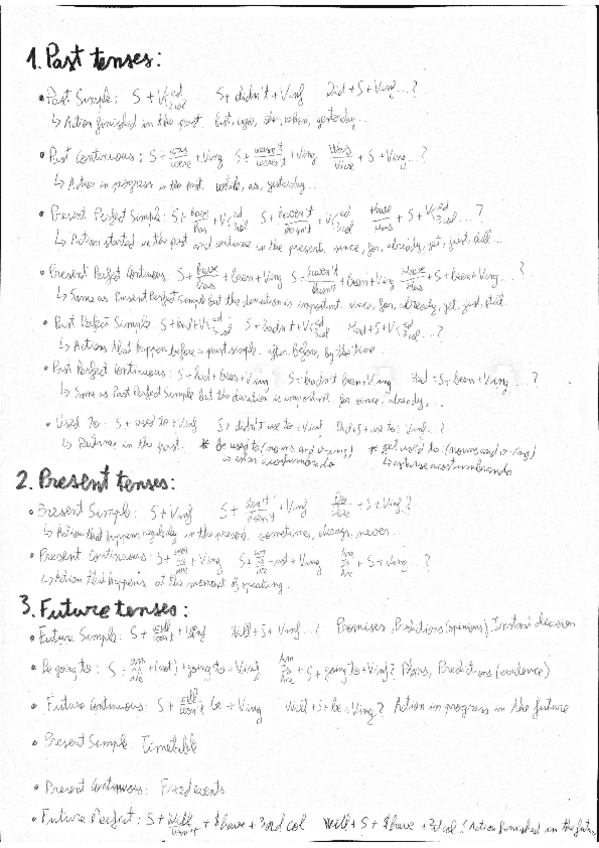 1. Past tenses:
• Past Simple: S + V(ed/2col S + didn't + Vinf Did + S + Vinf...?
↳ Action finished in the past. last, ago, when, yesterday...
• Past Continuous: S + was/were + Ving S + wasn't/weren't + Ving Was/Were + S + Ving...?
↳ Action in progress in the past. while, as, yesterday...
• Present Perfect Simple: S + have/has + V(ed/3col S + haven't/hasn't + V(ed/3col Have/Has + S + V(ed/3col...?
↳ Action started in the past and continue in the present. since, for, already, yet, just, still...
• Present Perfect Continuous: S + have/has + been + Ving S + haven't/hasn't + been + Ving Have/Has + S + been + Ving...?
↳ Same as Present Perfect Simple but the duration is important. since, for, already, yet, just, still.
• Past Perfect Simple: S + had + V(ed/3col S + hadn't + V(ed/3col Had + S + V(ed/3col...?
↳ Actions that happen before a past simple. after, before, by the time...
• Past Perfect Continuous: S + had + been + Ving S + hadn't been + Ving Had + S + been + Ving...?
↳ Same as Past Perfect Simple but the duration is important. for, since, already,...
• Used to: S + used to + Vinf S + didn't use to + Vinf Did + S + use to + Vinf...?
↳ in the past. * be used to (nouns and v-ing) * get used to (nouns and v-ing)
↳ estar acostumbrado ↳ acostumbrando
2. Present tenses:
• Present Simple: S + Vinf S + don't/doesn't + Vinf Do/Does + S + Vinf?
↳ Action that happens regularly in the present. sometimes, always, never...
• Present Continuous: S + am/is/are + Ving S + am/is/are + not + Ving Am/Is/Are + S + Ving...?
↳ Action that happens at the moment of speaking.
3. Future tenses:
• Future Simple: S + will/won't + Vinf Will + S + Vinf...? Promises, Predictions (opinions), Instant decision
• Be going to: S + am/is/are + (not) + going to + Vinf Am/Is/Are + S + going to + Vinf? Plans, Predictions (evidence)
• Future Continuous: S + will/won't be + Ving Will + S + be + Ving? Action in progress in the future
• Present Simple: Timetable
• Present Continuous: Fixed events
• Future Perfect: S + Will/won't + have + 3rd col Will + S + have + 3rd col? Action finished in the future